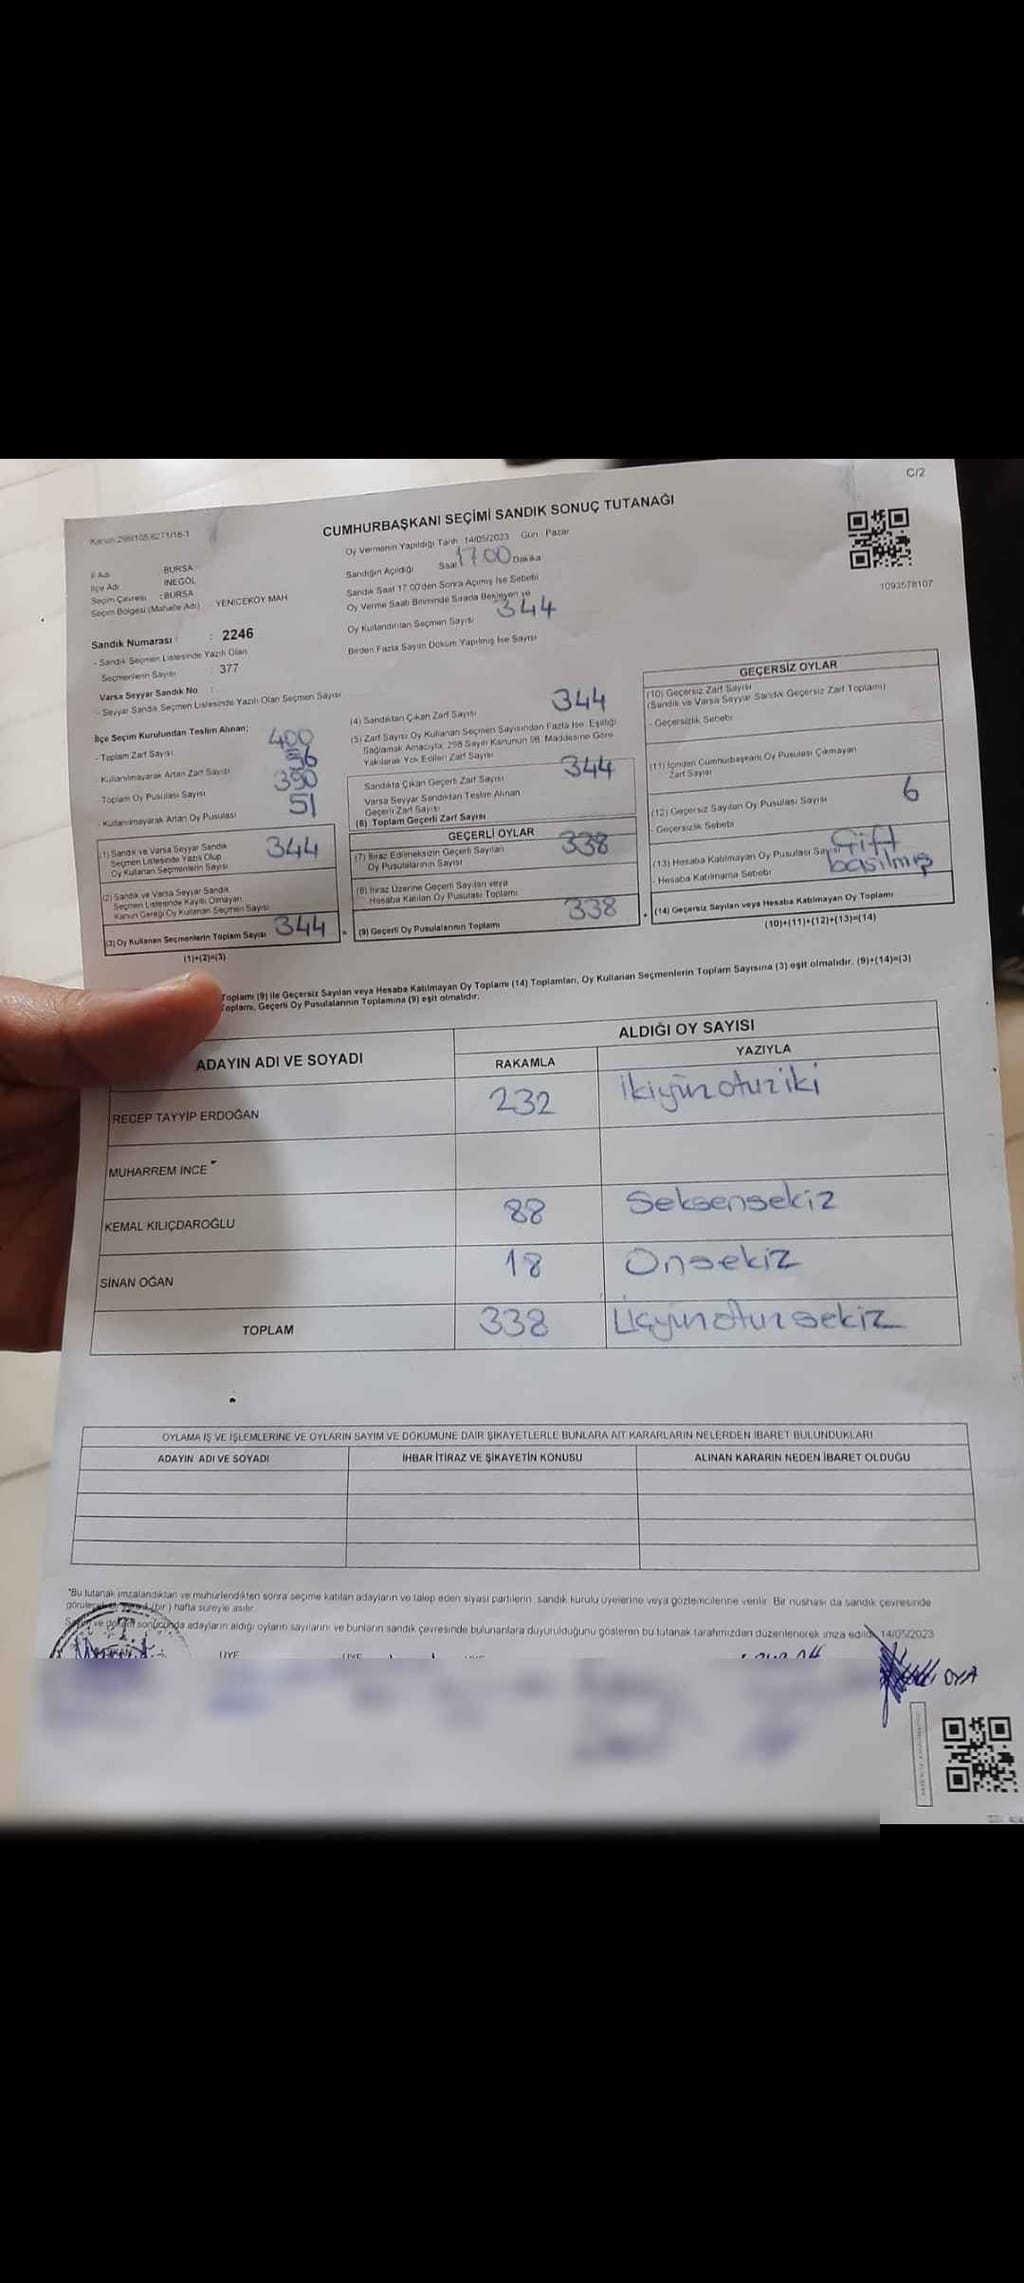 C/2
Kanun 298/105-6271/18-1
CUMHURBAŞKANI SEÇİMİ SANDIK SONUÇ TUTANAĞI
İl Adı BURSA
İlçe Adı İNEGÖL
Seçim Çevresi : BURSA
Seçim Bölgesi (Mahalle Adı) YENİCEKÖY MAH
Sandık Numarası : 2246
- Sandık Seçmen Listesinde Yazılı Olan
Seçmenlerin Sayısı : 377
Varsa Seyyar Sandık No :
- Seyyar Sandık Seçmen Listesinde Yazılı Olan Seçmen Sayısı
Oy Vermenin Yapıldığı Tarih 14/05/2023 Gün Pazar
Sandığın Açıldığı Saat 17.00 Dakika
Sandık Saat 17 00'den Sonra Açılmış İse Sebebi
Oy Verme Saati Bitiminde Sırada Bekleyen ve
Oy Kullandırılan Seçmen Sayısı 344
Birden Fazla Sayım Döküm Yapılmış İse Sayısı
1093578107
İlçe Seçim Kurulundan Teslim Alınan;
- Toplam Zarf Sayısı 400
- Kullanılmayarak Artan Zarf Sayısı 56
- Toplam Oy Pusulası Sayısı 390
- Kullanılmayarak Artan Oy Pusulası 51
(1) Sandık ve Varsa Seyyar Sandık
Seçmen Listesinde Yazılı Olup
Oy Kullanan Seçmenlerin Sayısı 344
(2) Sandık ve Varsa Seyyar Sandık
Seçmen Listesinde Kayıtlı Olmayan
Kanun Gereği Oy Kullanan Seçmen Sayısı
(3) Oy Kullanan Seçmenlerin Toplam Sayısı 344
(1)+(2)=(3)
(4) Sandıktan Çıkan Zarf Sayısı 344
(5) Zarf Sayısı Oy Kullanan Seçmen Sayısından Fazla İse, Eşitliği
Sağlamak Amacıyla, 298 Sayılı Kanunun 98. Maddesine Göre
Yakılarak Yok Edilen Zarf Sayısı
Sandıkta Çıkan Geçerli Zarf Sayısı 344
Varsa Seyyar Sandıktan Teslim Alınan
Geçerli Zarf Sayısı
(6) Toplam Geçerli Zarf Sayısı
GEÇERLİ OYLAR
(7) İtiraz Edilmeksizin Geçerli Sayılan
Oy Pusulalarının Sayısı 338
(8) İtiraz Üzerine Geçerli Sayılan veya
Hesaba Katılan Oy Pusulası Toplamı
(9) Geçerli Oy Pusulalarının Toplamı 338
GEÇERSİZ OYLAR
(10) Geçersiz Zarf Sayısı
(Sandık ve Varsa Seyyar Sandık Geçersiz Zarf Toplamı)
- Geçersizlik Sebebi
(11) İçinden Cumhurbaşkanı Oy Pusulası Çıkmayan
Zarf Sayısı
(12) Geçersiz Sayılan Oy Pusulası Sayısı 6
- Geçersizlik Sebebi
(13) Hesaba Katılmayan Oy Pusulası Sayısı Çift
- Hesaba Katılmama Sebebi basılmış
(14) Geçersiz Sayılan veya Hesaba Katılmayan Oy Toplamı
(10)+(11)+(12)+(13)=(14)
Toplamı (9) ile Geçersiz Sayılan veya Hesaba Katılmayan Oy Toplamı (14) Toplamları, Oy Kullanan Seçmenlerin Toplam Sayısına (3) eşit olmalıdır. (9)+(14)=(3)
Toplamı, Geçerli Oy Pusulalarının Toplamına (9) eşit olmalıdır.
ADAYIN ADI VE SOYADI ALDIĞI OY SAYISI
RAKAMLA YAZIYLA
RECEP TAYYİP ERDOĞAN 232 ikiyüzotuziki
MUHARREM İNCE
KEMAL KILIÇDAROĞLU 88 Seksensekiz
SİNAN OĞAN 18 Onsekiz
TOPLAM 338 Üçyüzotuzsekiz
OYLAMA İŞ VE İŞLEMLERİNE VE OYLARIN SAYIM VE DÖKÜMÜNE DAİR ŞİKAYETLERLE BUNLARA AİT KARARLARIN NELERDEN İBARET BULUNDUKLARI
ADAYIN ADI VE SOYADI İHBAR İTİRAZ VE ŞİKAYETİN KONUSU ALINAN KARARIN NEDEN İBARET OLDUĞU
*Bu tutanak imzalandıktan ve mühürlendikten sonra seçime katılan adayların ve talep eden siyasi partilerin sandık kurulu üyelerine veya gözlemcilerine verilir. Bir nüshası da sandık çevresinde
(bir) hafta süreyle asılır
ve döküm sonucunda adayların aldığı oyların sayılarını ve bunların sandık çevresinde bulunanlara duyurulduğunu gösteren bu tutanak tarafımızdan düzenlenerek imza edildi. 14/05/2023
ÜYE
OYA